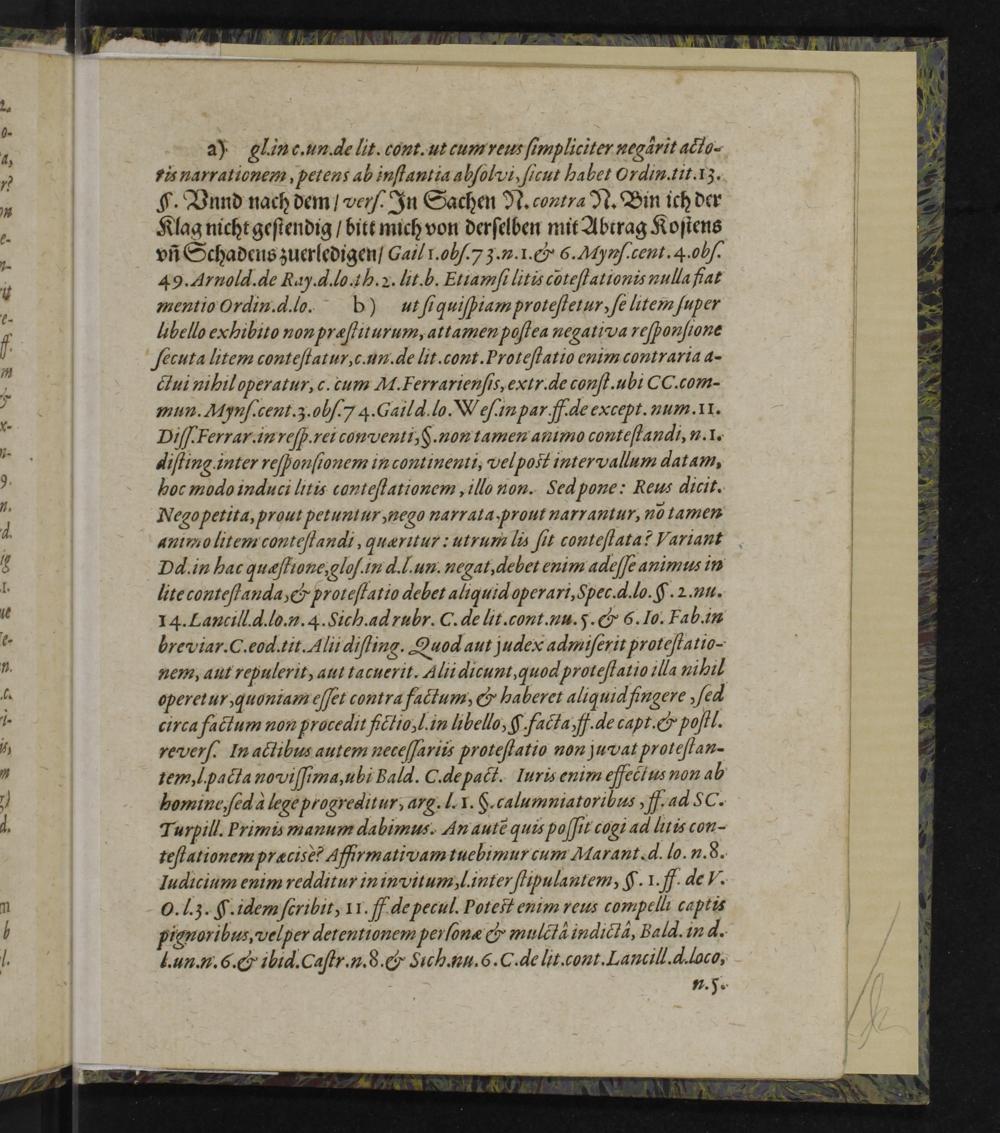 a) gl. in c. un. de lit. cont. ut cum reus ſimpliciter negârit acto-
ris narrationem, petens ab inſtantia abſolvi, ſicut habet Ordin. tit. 13.
§. Vnnd nach dem / verſ. In Sachen N. contra N. Bin ich der
Klag nicht geſtendig / bitt mich von derſelben mit Abtrag Koſtens
vñ Schadens zuerledigen / Gail 1. obſ. 73. n. 1. & 6. Mynſ. cent. 4. obſ.
49. Arnold. de Ray. d. lo. th. 2. lit. b. Etiamſi litis cõteſtationis nulla fiat
mentio Ordin. d. lo. b) ut ſi quiſpiam proteſtetur, ſe litem ſuper
libello exhibito non præſtiturum, attamen poſtea negativa reſponſione
ſecuta litem conteſtatur, c. un. de lit. cont. Proteſtatio enim contraria a-
ctui nihil operatur, c. cum M. Ferrarienſis, extr. de conſt. ubi CC. com-
mun. Mynſ. cent. 3. obſ. 74. Gail d. lo. Weſ. in par. ff. de except. num. 11.
Diſſ. Ferrar. in reſp. rei conventi, §. non tamen animo conteſtandi, n. 1.
diſting. inter reſponſionem in continenti, vel poſt intervallum datam,
hoc modo induci litis conteſtationem, illo non. Sed pone: Reus dicit.
Nego petita, prout petuntur, nego narrata, prout narrantur, nõ tamen
animo litem conteſtandi, quæritur: utrum lis ſit conteſtata? Variant
Dd. in hac quæſtione, gloſ. in d. l. un. negat, debet enim adeſſe animus in
lite conteſtanda, & proteſtatio debet aliquid operari, Spec. d. lo. §. 2. nu.
14. Lancill. d. lo. n. 4. Sich. ad rubr. C. de lit. cont. nu. 5. & 6. Io. Fab. in
breviar. C. eod. tit. Alii diſting. Quod aut judex admiſerit proteſtatio-
nem, aut repulerit, aut tacuerit. Alii dicunt, quod proteſtatio illa nihil
operetur, quoniam eſſet contra factum, & haberet aliquid fingere, ſed
circa factum non procedit fictio, l. in libello, §. facta, ff. de capt. & poſtl.
reverſ. In actibus autem neceſſariis proteſtatio non juvat proteſtan-
tem, l. pacta noviſſima, ubi Bald. C. de pact. Iuris enim effectus non ab
homine, ſed à lege progreditur, arg. l. 1. §. calumniatoribus, ff. ad SC.
Turpill. Primis manum dabimus. An autẽ quis poſſit cogi ad litis con-
teſtationem præcisè? Affirmativam tuebimur cum Marant. d. lo. n. 8.
Iudicium enim redditur in invitum, l. inter ſtipulantem, §. 1. ff. de V.
O. l. 3. §. idem ſcribit, 11. ff. de pecul. Poteſt enim reus compelli captis
pignoribus, vel per detentionem perſonæ & mulctâ indictâ, Bald. in d.
l. un. n. 6. & ibid. Caſtr. n. 8. & Sich. nu. 6. C. de lit. cont. Lancill. d. loco,
n. 5.